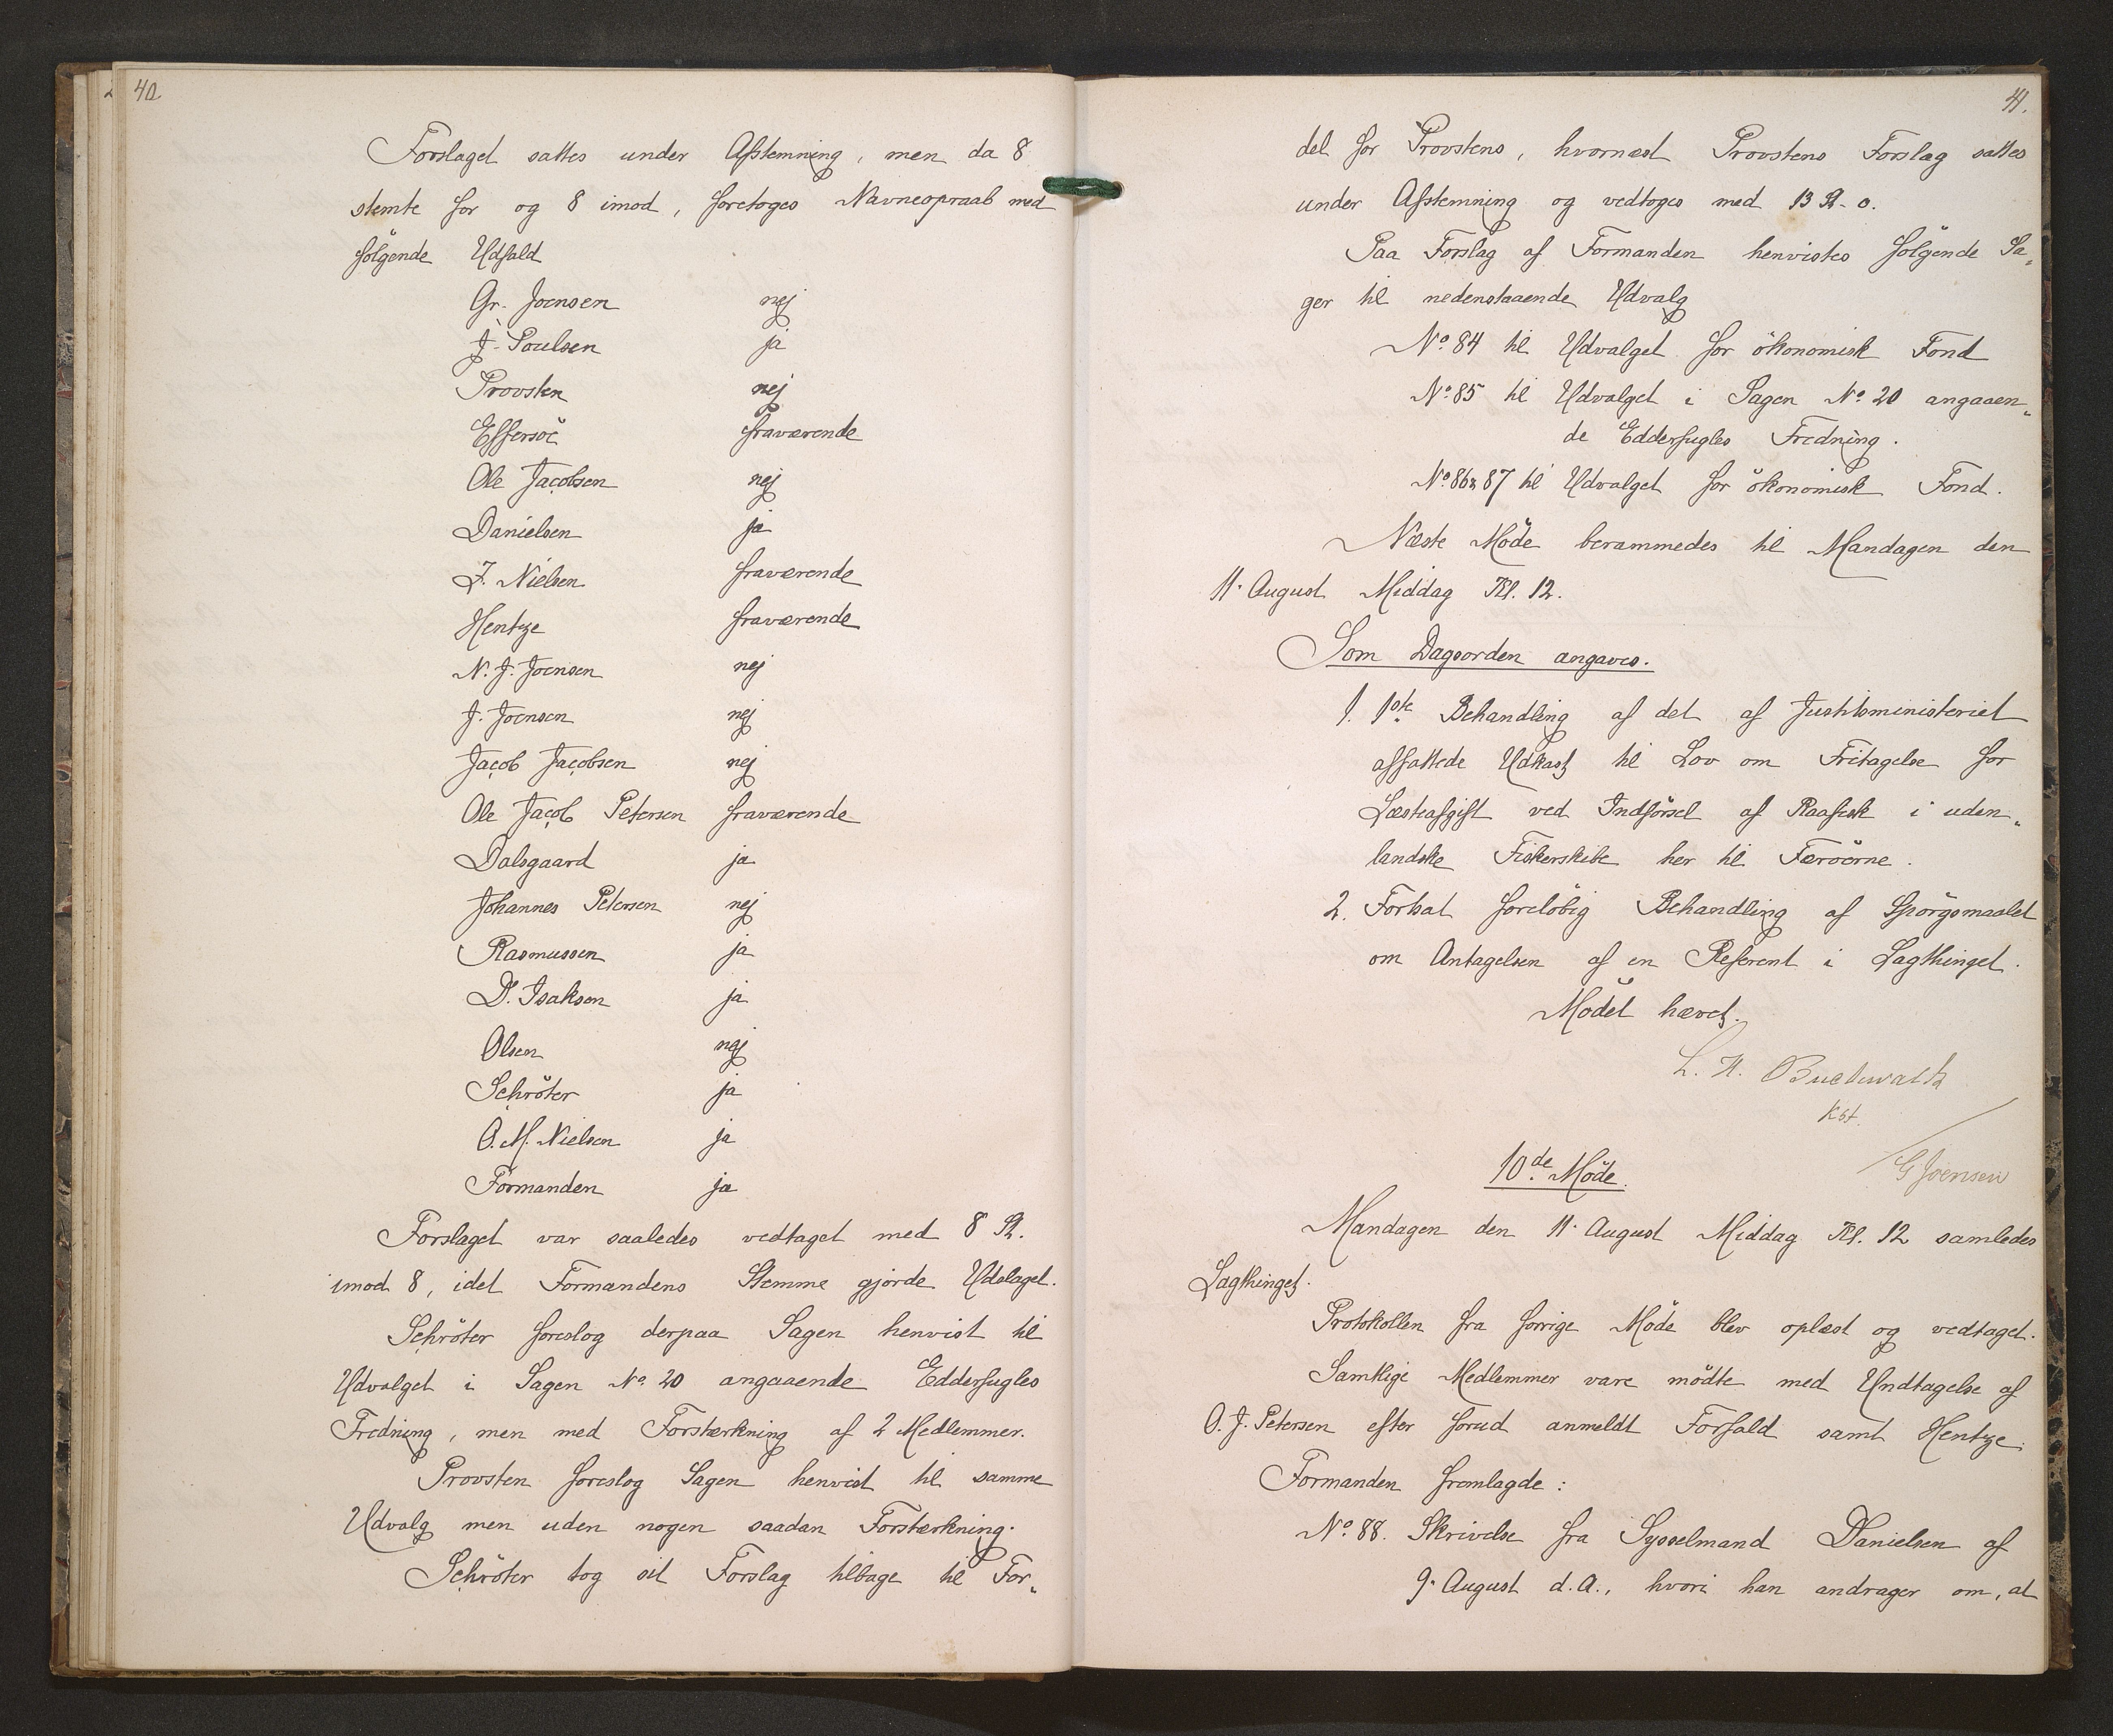 40
Forslaget sattes under Afstemning, men da 8
stemte for og 8 imod, foretoges Navneopraab med
følgende Udfald
Gr. Joensen nej
J. Poulsen ja
Provsten nej
Effersöe fraværende
Ole Jacobsen nej
Danielsen ja
J. Nielsen fraværende
Hentze fraværende
N. J. Joensen nej
J. Joensen nej
Jacob Jacobsen nej
Ole Jacob Petersen fraværende
Dalsgaard ja
Johannes Petersen nej
Rasmussen ja
D. Isaksen ja
Olsen nej
Schröter ja
O. M. Nielsen ja
Formanden ja
Forslaget var saaledes vedtaget med 8 St.
imod 8, idet Formandens Stemme gjorde Udslaget.
Schröter foreslog derpaa Sagen henvist til
Udvalget i Sagen No. 20 angaaende Edderfugles
Fredning, men med Forstærkning af 2 Medlemmer.
Provsten foreslog Sagen henvist til samme
Udvalg men uden nogen saadan Forstærkning.
Schröter tog sit Forslag tilbage til For„
41.
del for Provstens, hvornæst Provstens Forslag sattes
under Afstemning og vedtoges med 13 St. - 0.
Paa Forslag af Formanden henvistes følgende Sa„
ger til nedenstaaende Udvalg
No. 84 til Udvalget for økonomisk Fond
No. 85 til Udvalget i Sagen No. 20 angaaen„
de Edderfugles Fredning.
No. 86 & 87 til Udvalget for økonomisk Fond.
Næste Möde berammedes til Mandagen den
11. August Middag Kl. 12.
Som Dagsorden angaves.
1. 1ste Behandling af det af Justitsministeriet
affattede Udkast til Lov om Fritagelse for
Læsteafgift ved Indførsel af Raafisk i uden„
landske Fiskerskibe her til Færöerne.
2. Fortsat foreløbig Behandling af Spörgsmaalet
om Antagelsen af en Referent i Lagthinget.
Mödet hævet.
L. H. Buchwaldt
Kst.
G Joensen
10de Möde.
Mandagen den 11. August Middag Kl. 12 samledes
Lagthinget.
Protokollen fra forrige Möde blev oplæst og vedtaget.
Samtlige Medlemmer vare mödte med Undtagelse af
O. J. Petersen efter forud anmeldt Forfald samt Hentze.
Formanden fremlagde:
No. 88. Skrivelse fra Sysselmand Danielsen af
9. August d. A., hvori han andrager om, at